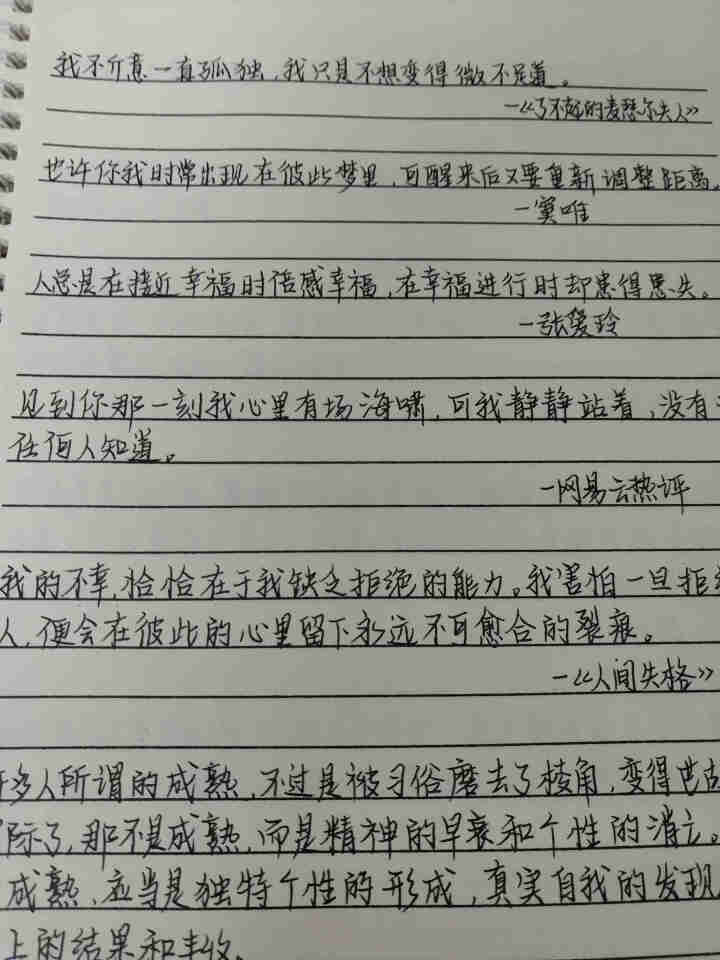 我不介意一直孤独，我只是不想变得微不足道。
—《了不起的麦瑟尔夫人》
也许你我时常出现在彼此梦里，可醒来后又要重新调整距离。
—窦唯
人总是在接近幸福时倍感幸福，在幸福进行时却患得患失。
—张爱玲
见到你那一刻我心里有场海啸，可我静静站着，没有
任何人知道。
—网易云热评
我的不幸，恰恰在于我缺乏拒绝的能力。我害怕一旦拒
人，便会在彼此的心里留下永远不可愈合的裂痕。
—《人间失格》
多人所谓的成熟，不过是被习俗磨去了棱角，变得世故
际了，那不是成熟，而是精神的早衰和个性的消亡。
成熟，应当是独特个性的形成，真实自我的发现
上的结果和丰收。